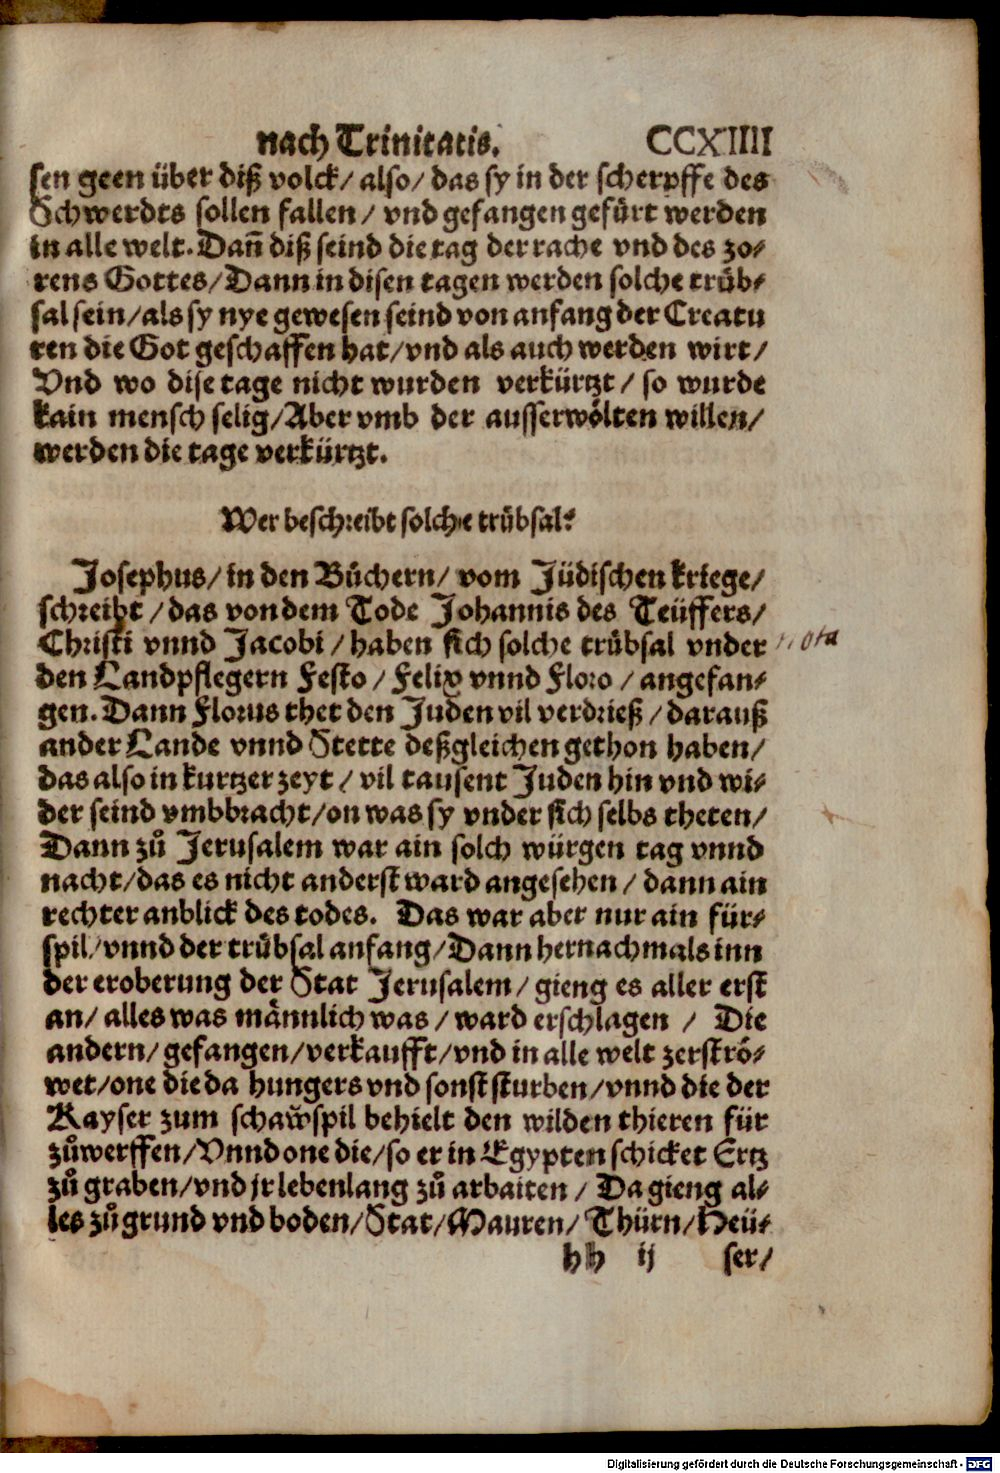 nach Trinitatis. CCXIIII
sen geen über diß volck/ also/ das sy in der scherpffe des
Schwerdts sollen fallen/ vnd gefangen gefürt werden
in alle welt. Dañ diß seind die tag der rache vnd des zo-
rens Gottes/ Dann in disen tagen werden solche trüb-
sal sein/ als sy nye gewesen seind von anfang der Creatu
ren die Got geschaffen hat/ vnd als auch werden wirt/
Vnd wo dise tage nicht wurden verkürtzt/ so wurde
kain mensch selig/ Aber vmb der ausserwölten willen/
werden die tage verkürtzt.
Wer beschreibt solche trübsal?
Josephus/ in den Büchern/ vom Jüdischen kriege/
schreibt/ das von dem Tode Johannis des Teüffers/
Christi vnnd Jacobi/ haben sich solche trübsal vnder
Nota
den Landpflegern Festo/ Felix vnnd Floro/ angefan-
gen. Dann Florus thet den Juden vil verdrieß/ darauß
ander Lande vnnd Stette deßgleichen gethon haben/
das also in kurtzer zeyt/ vil tausent Juden hin vnd wi-
der seind vmbbracht/ on was sy vnder sich selbs theten/
Dann zů Jerusalem war ain solch würgen tag vnnd
nacht/ das es nicht anderst ward angesehen/ dann ain
rechter anblick des todes. Das war aber nur ain für-
spil/ vnnd der trübsal anfang/ Dann hernachmals inn
der eroberung der Stat Jerusalem/ gieng es aller erst
an/ alles was männlich was/ ward erschlagen/ Die
andern/ gefangen/ verkaufft/ vnd in alle welt zerströ-
wet/ one die da hungers vnd sonst sturben/ vnnd die der
Kayser zum schawspil behielt den wilden thieren für
zůwerffen/ Vnnd one die/ so er in Egypten schicket Ertz
zů graben/ vnd jr lebenlang zů arbaiten/ Da gieng al-
les zů grund vnd boden/ Stat/ Mauren/ Thürn/ Heü-
hh ij ser/
Digitalisierung gefördert durch die Deutsche Forschungsgemeinschaft - DFG